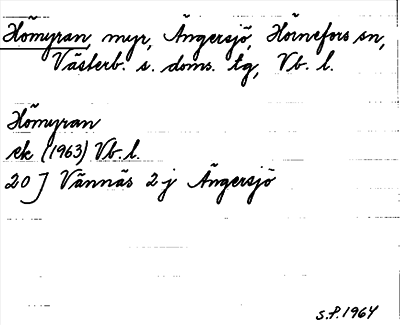 Hömyran, myr, Ängersjö, Hörnefors sn,
Västerb. s. doms. tg, Vb. l.
Hömyran
ek (1963) Vb. l.
20 J Vännäs 2 j Ängersjö
S.P. 1964